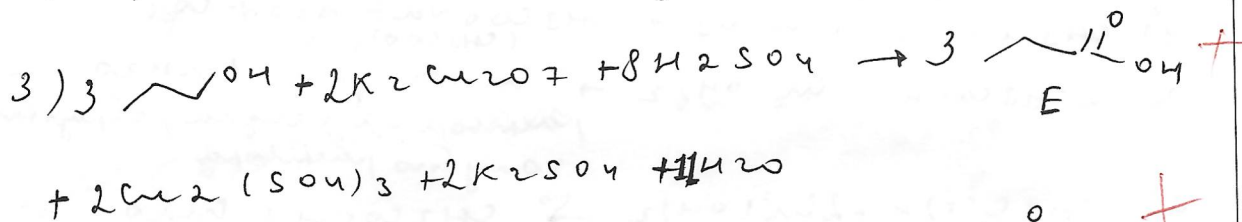 3) 3 OH + 2K2Cr2O7 + 8H2SO4 → 3 O OH +
E
+ 2Cr2(SO4)3 + 2K2SO4 + 11H2O
O +